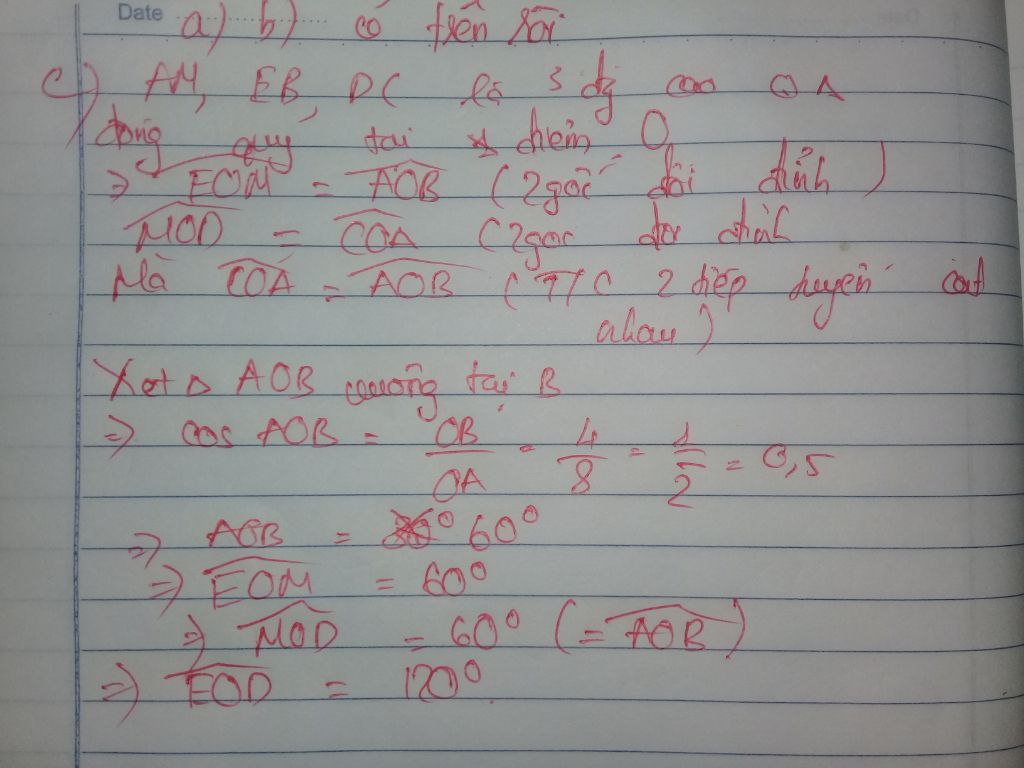 Date a) b) có trên rồi
c) AM, EB, DC là 3 đg cao
đồng quy tại điểm O
=> EOM = AOB (2 góc đối đỉnh)
MOD = COA (2 góc đối đỉnh
Mà COA = AOB (T/C 2 tiếp tuyến cắt
nhau)
Xét Δ AOB vuông tại B
=> cos AOB = OB/OA = 4/8 = 1/2 = 0,5
=> AOB = 60°
=> EOM = 60°
=> MOD = 60° (= AOB)
=> EOD = 120°